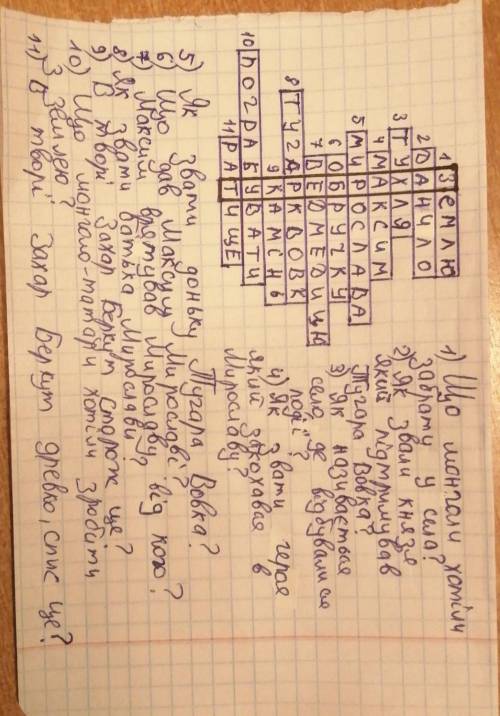 1 ЗЕМЛЮ
2 ДАНИЛО
3 ТУХЛЯ
4 МАКСИМ
5 МИРОСЛАВА
6 ОБРУЧКУ
7 ВЕДМЕДИЦЮ
8 ТУГАРКВОВК
9 КАМЕНЬ
10 ПОГРАБУВАТИ
11 РАТИЩЕ
1) Що монгали хотіли
забрати у села?
2) Як звали князя
який підтримував
Тугора Вовка?
3) Як називається
село, де відбувалися
події?
4) Як звати героя
який закохався в
Мирославу?
5) Як звати доньку Тугара Вовка?
6) Що дав Максим Мирославі?
7) Максим врятував Мирославу від кого?
8) Як звати батька Мирослави?
9) В творі Захар Беркут Сторож це?
10) Що монгало-татари хотіли зробити
з землею?
11) В творі Захар Беркут древко, спис це?